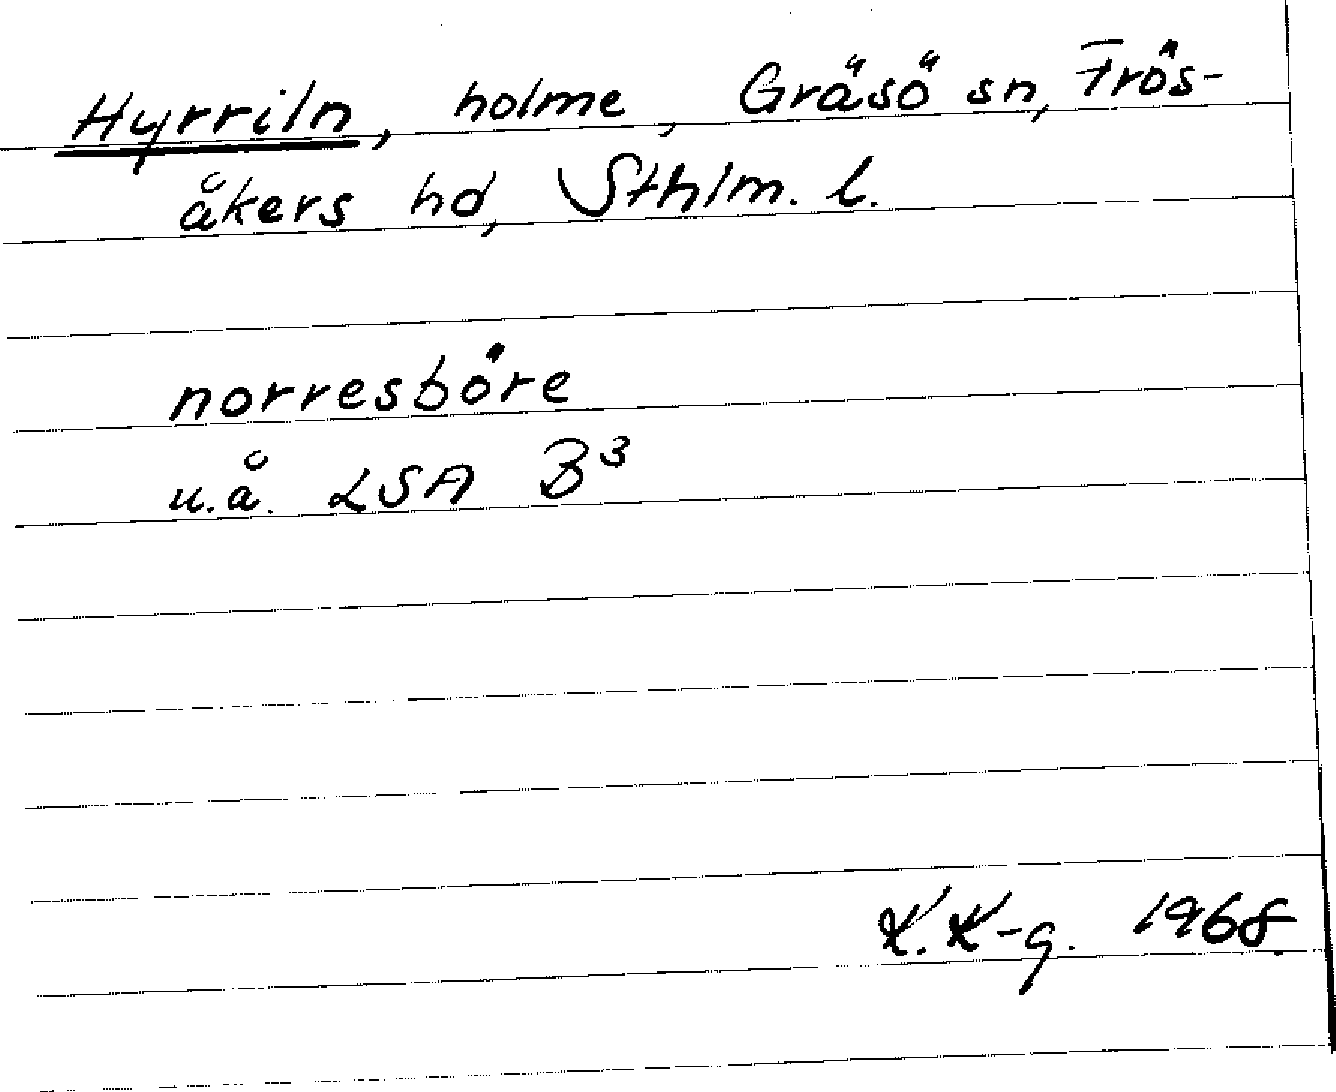 Hyrriln, holme, Gräsö sn, Frös-
åkers hd, Sthlm. l.
norresböre
u.å. LSA B³
K. K-g. 1968